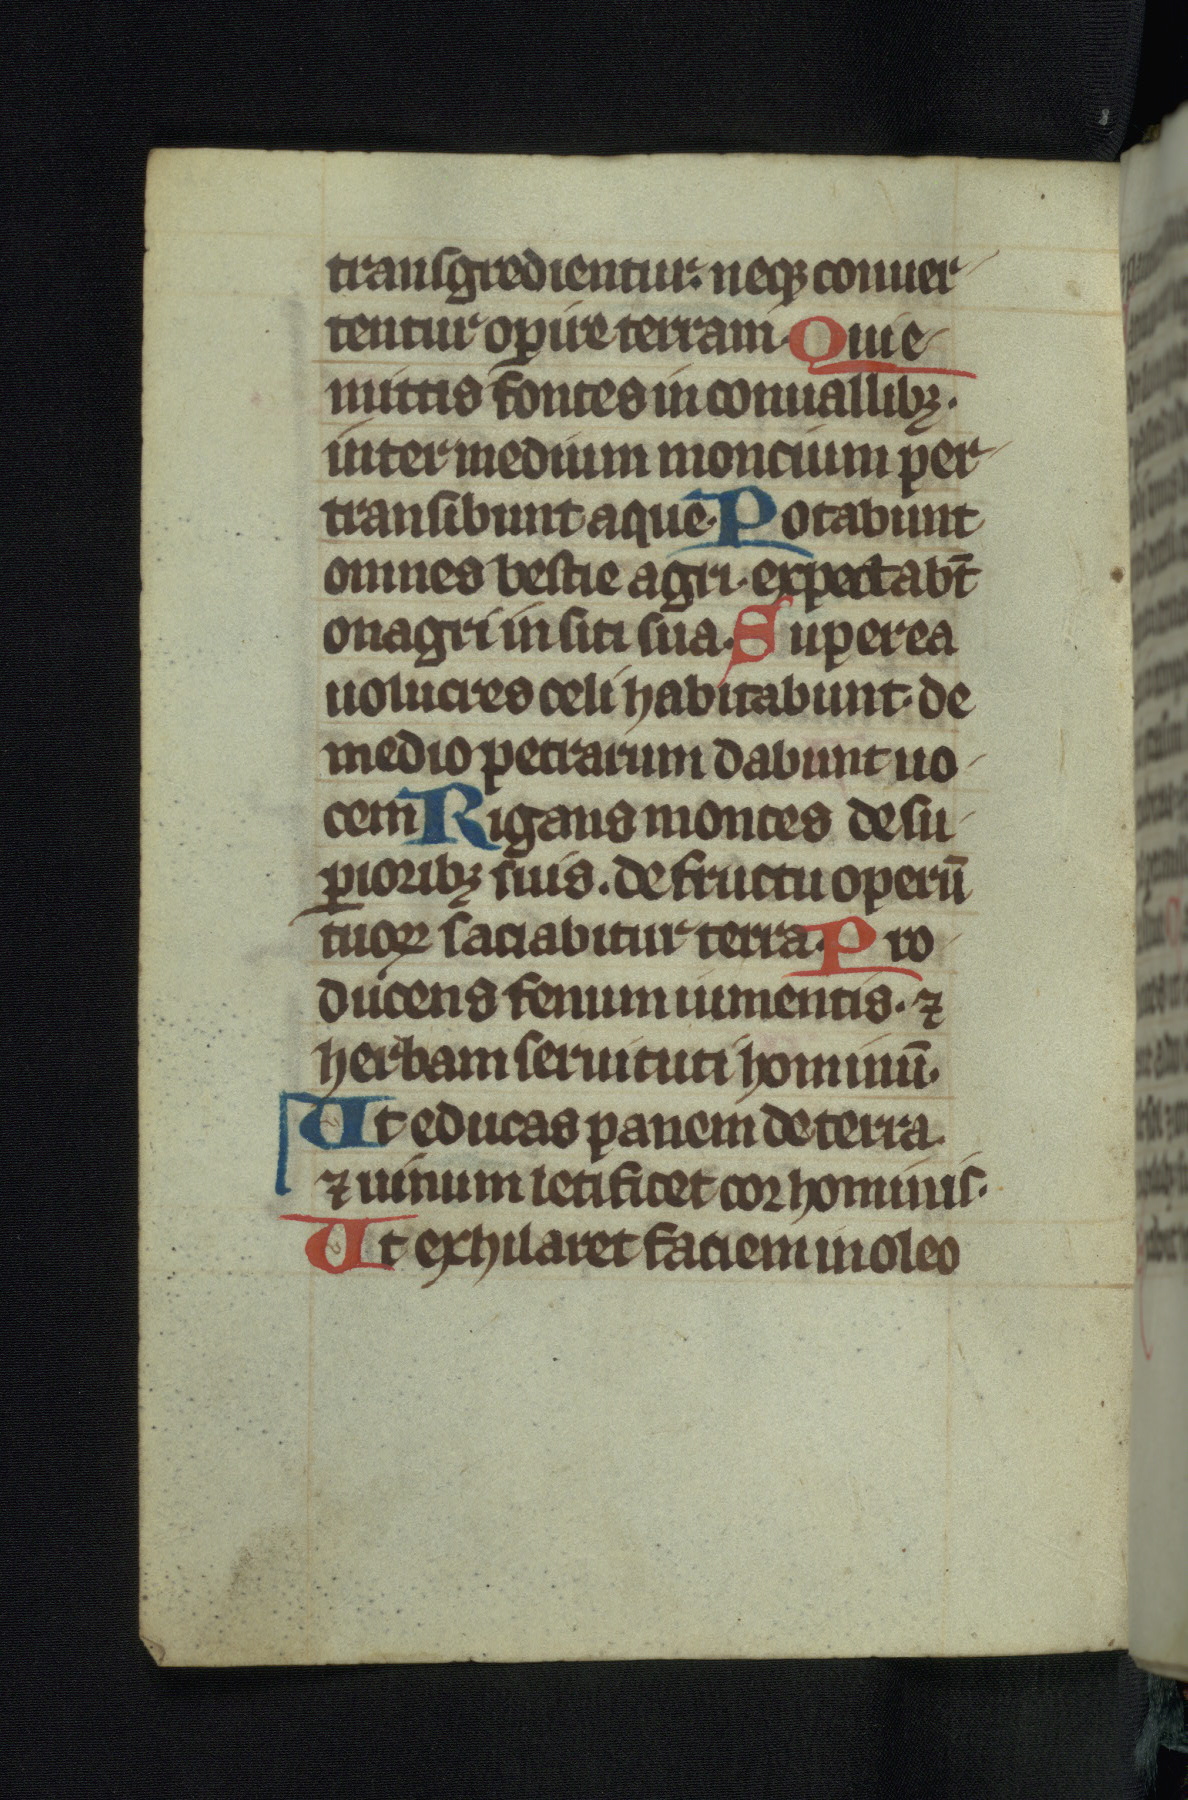 transgredientur. neqꝫ conuer
tentur operire terram. Qui e
mittis fontes in conuallibꝫ.
inter medium moncium per
transibunt aque. Potabunt
omnes bestie agri. expectabt̄
onagri in siti sua. Super ea
uolucres celi habitabunt. de
medio petrarum dabunt uo
cem Rigans montes de su
ꝑioribꝫ suis. de fructu operū
tuoꝝ saciabitur terra. Pro
ducens fenum iumentis. ⁊
herbam seruituti hominū.
Ut educas panem de terra.
⁊ uinum letificet cor hominis.
Ut exhilaret faciem in oleo